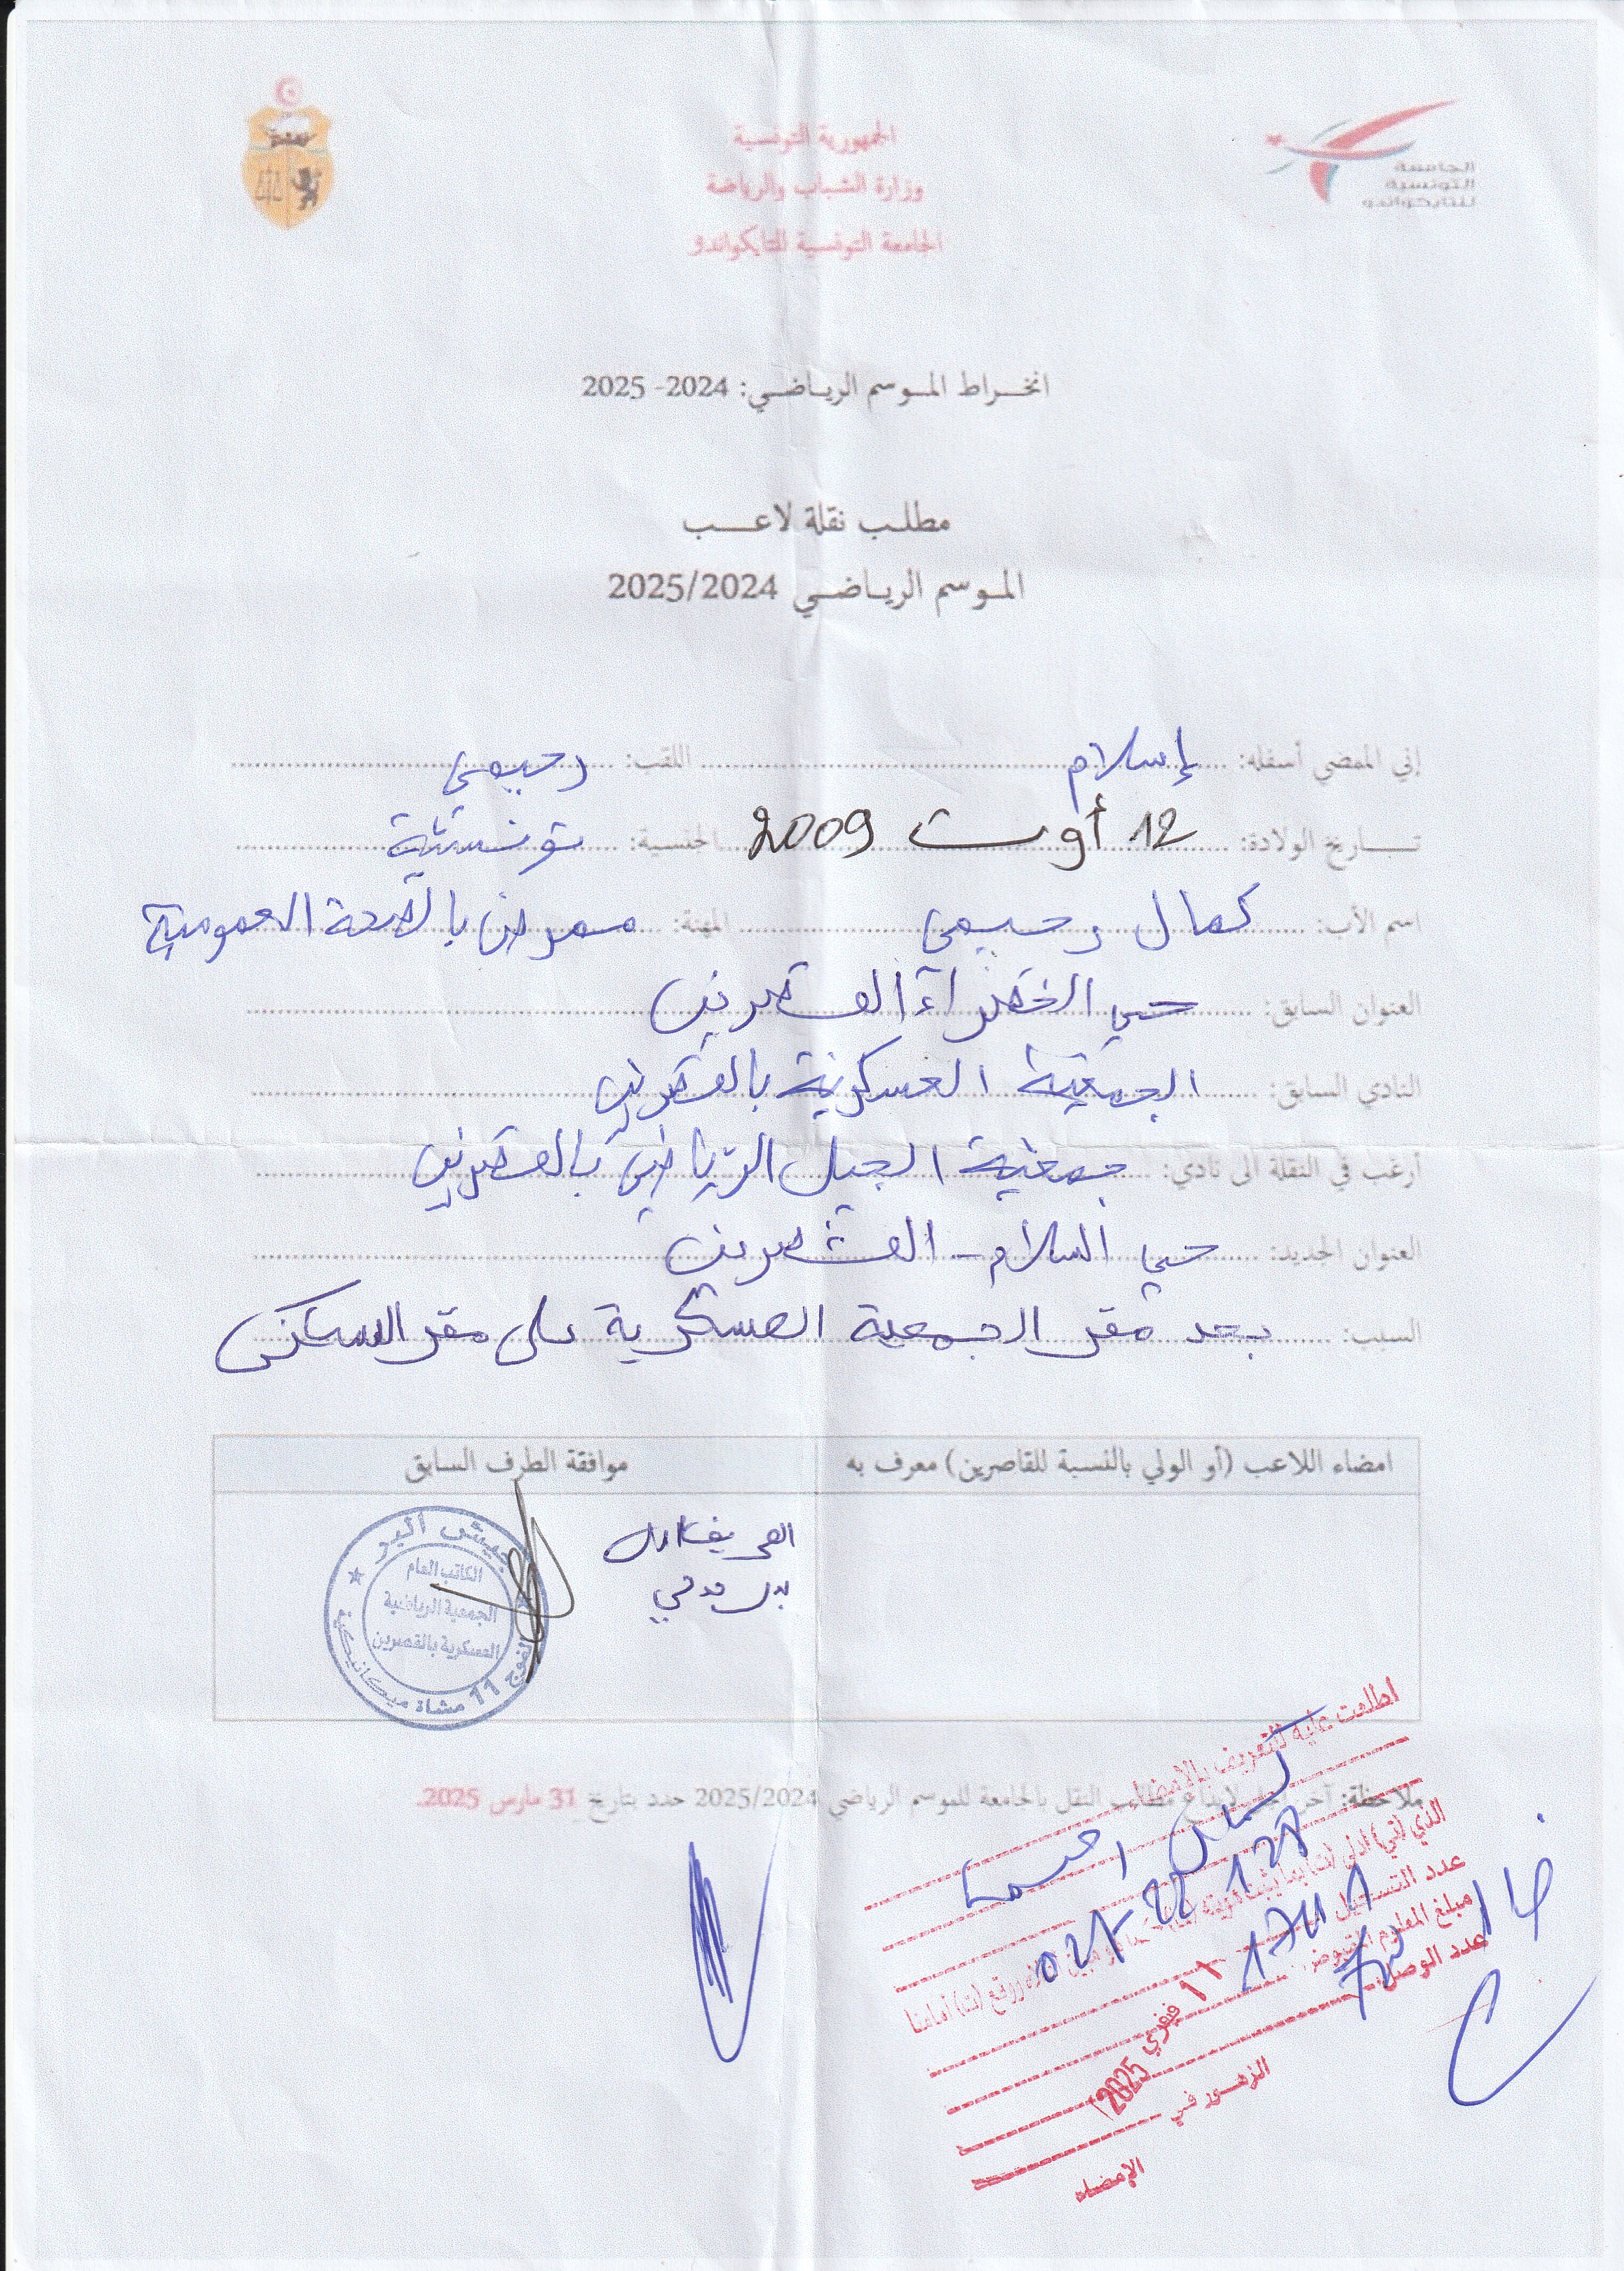 الجمهورية التونسية
وزارة الشباب والرياضة
الجامعة التونسية للتايكواندو
الجامعة
التونسية
للتايكواندو
انخراط الموسم الرياضي: 2024- 2025
مطلب نقلة لاعب
الموسم الرياضي 2025/2024
إني الممضي أسفله: إسلام اللقب: رحيمي
تاريخ الولادة: 12 أوت 2009 الجنسية: تونسية
اسم الأب: كمال رحيمي المهنة: ممرض بالصحة العمومية
العنوان السابق: حي الخضراء القصرين
النادي السابق: الجمعية العسكرية بالقصرين
أرغب في النقلة الى نادي: جمعية الجيل الرياضي بالقصرين
العنوان الجديد: حي السلام - القصرين
السبب: بعد مقر الجمعية العسكرية على مقر السكنى
امضاء اللاعب (أو الولي بالنسبة للقاصرين) معرف به
موافقة الطرف السابق
جيش البر
الكاتب العام
الجمعية الرياضية
العسكرية بالقصرين
الفوج 11 مشاة ميكانيكية
ملاحظة: آخر أجل لإيداع مطالب النقل بالجامعة للموسم الرياضي 2025/2024 حدد بتاريخ 31 مارس 2025.
اطلعت عليه للتعريف بالإمضاء
عدد التسجيل
مبلغ المعلوم المقبوض
عدد الوصل
11 فيفري 2025
الزهور في
الإمضاء